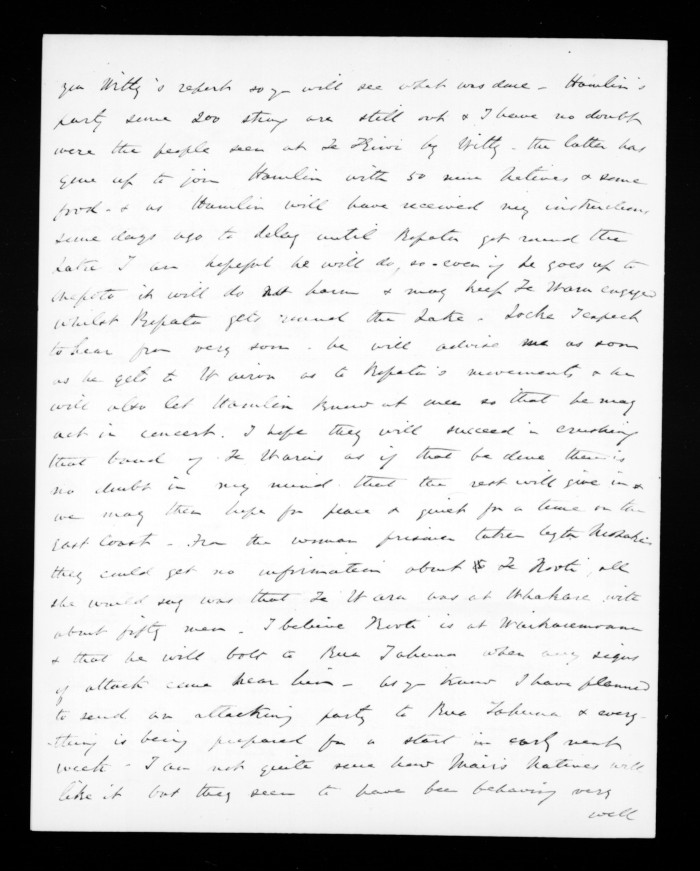 you Witty's report so yr will see what was done - Hamlin's
party some 200 strong are still out & I have no doubt
were the people seen at Te Kiwi by Witty - the latter has
gone up to join Hamlin with 50 more Natives & some
food - & as Hamlin will have received my instructions
some days ago to delay until Ropata got round the
Lake I am hopeful he will do so - even if he goes up to
it will do no harm & may keep Te Waru engaged
whilst Ropata gets round the Lake - Locke I expect
to hear from very soon - he will advise me as soon
as he gets to Wairoa as to Ropata's movements & he
will also let Hamlin know at once so that he may
act in concert. I hope they will succeed in crushing
that band of Te Waru's as if that be done there is
no doubt in my mind that the rest will give in &
we may then hope for peace & quiet for a time on the
East Coast - From the woman prisoner taken by
they could get no information about Te Kooti, all
she would say was that Te Waru was at Whakare with
about fifty men. I believe Kooti is at Waikaremoana
& that he will bolt to Rua Tahuna when any signs
of attack come near him - as yr know I have planned
to send an attacking party to Rua Tahuna & every-
thing is being prepared for a start in early next
week - I am not quite sure how Mair's Natives will
like it but they seem to have been behaving very
well